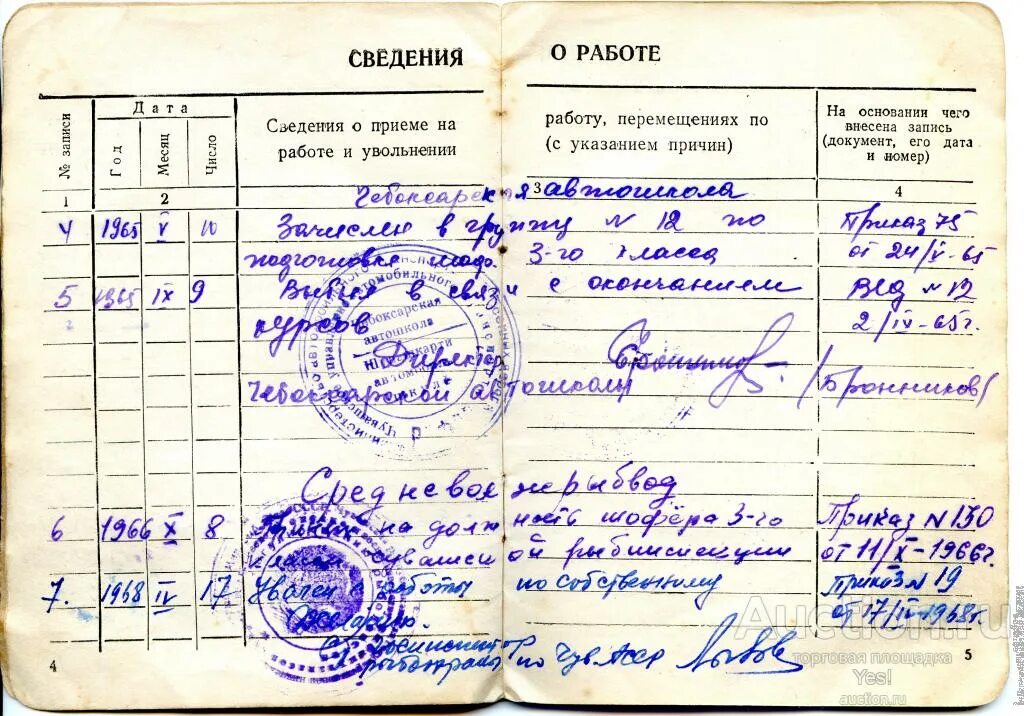 СВЕДЕНИЯ О РАБОТЕ
№ записи
Дата
Год
Месяц
Число
Сведения о приеме на работу, перемещениях по
работе и увольнении (с указанием причин)
На основании чего
внесена запись
(документ, его дата
и номер)
1 2 3 4
Чебоксарская автошкола
4 1965 V 10 Зачислен в группу № 12 по Приказ 75
подготовке 3-го класса от 24/V-65
5 1965 IX 9 Выбыл в связи с окончанием Вед №12
курсов 2/IV-65г.
Директор
Чебоксарской автошколы /Бронников/
Чебоксарская
автошкола
Средневолжрыбвод
6 1966 X 8 на должность шофёра 3-го Приказ №130
класса рыбинспекции от 11/X-1966г.
7. 1968 IV 17 Уволен с работы по собственному Приказ №19
желанию. от 17/IV-1968г.
Госинспектор
рыбоохраны по Чув АССР
4
5
Auction.ru
торговая площадка
Yes!
auction.ru